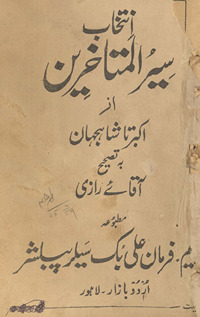 انتخاب
سیر المتاخرین
از
اکبر تا شاہجہان
بہ تصحیح
آقائے رازی
مطبوعہ
ایم۔ فرمان علی بک سیلر پبلشر
اردو بازار - لاہور